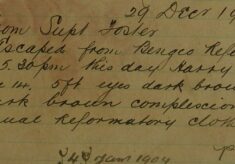 29 Decr 19
om Supt Foster
scaped from Bengeo Refo
5.30pm this day Harry
e 14. 5ft eyes dark brow
rk brown complexion
ual Reformatory cloth
24 Jan 1904